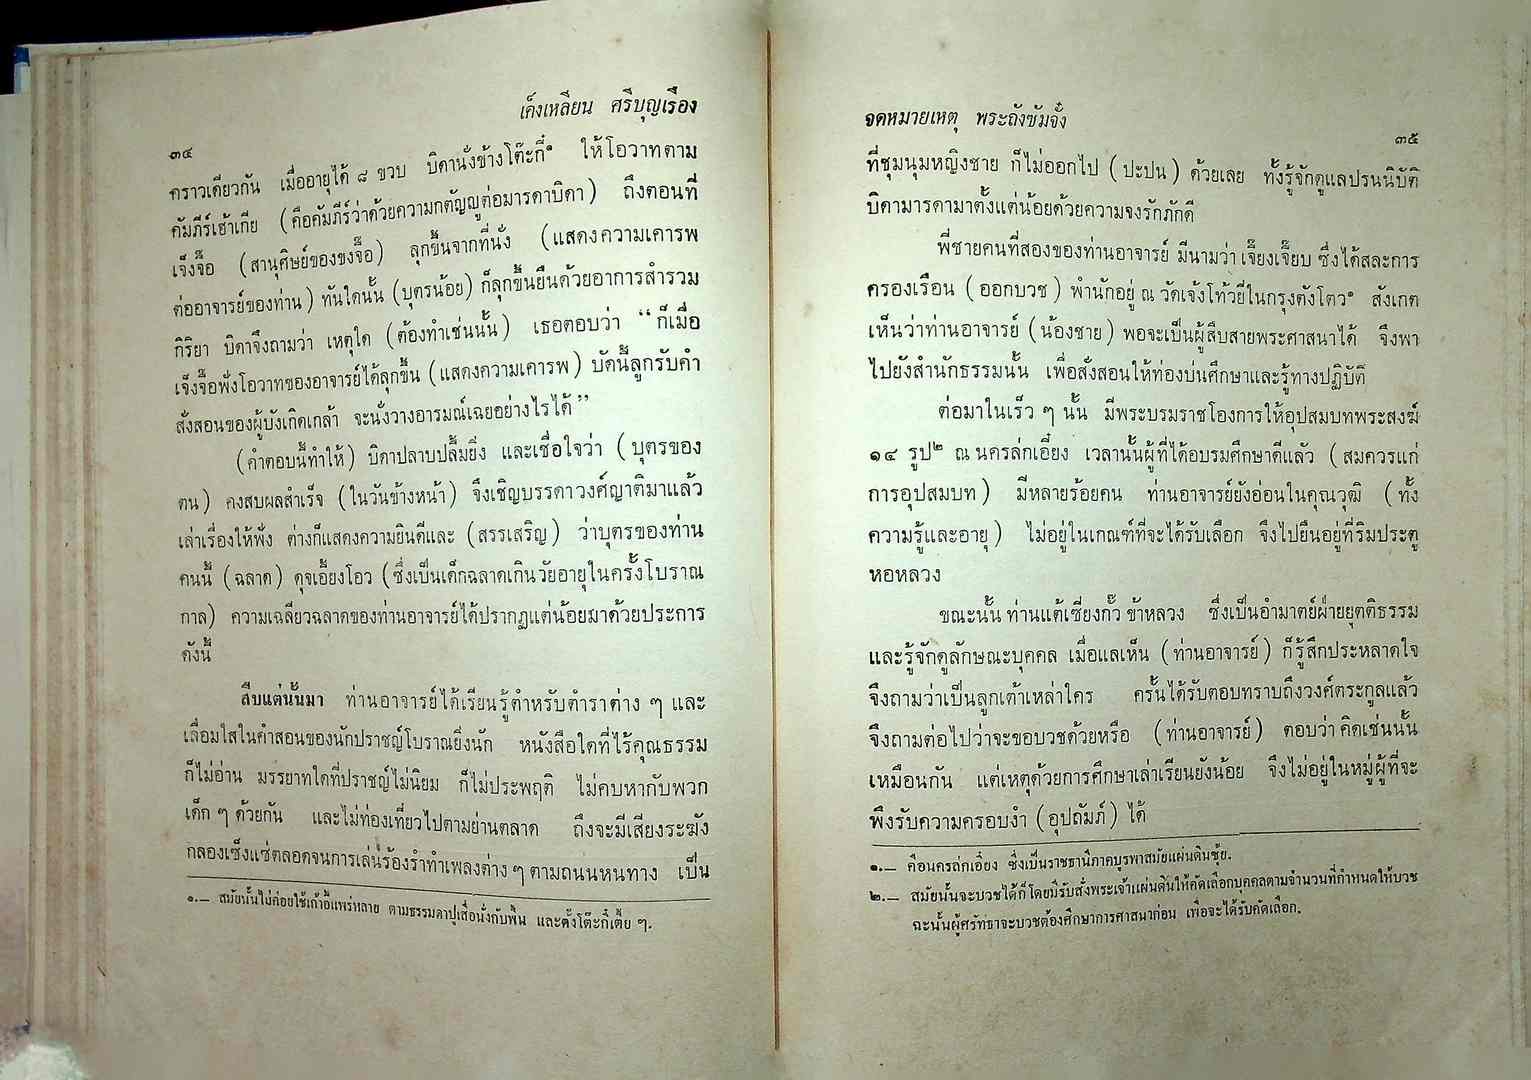 เค็งเหลียน ศรีบุญเรือง
๓๔
คราวเดียวกัน เมื่ออายุได้ ๘ ขวบ บิดานั่งข้างโต๊ะกี๋๑ ให้โอวาทตาม
คัมภีร์เฮ้าเกีย (คือคัมภีร์ว่าด้วยความกตัญญูต่อมารดาบิดา) ถึงตอนที่
เจ็งจื๊อ (สานุศิษย์ของขงจื๊อ) ลุกขึ้นจากที่นั่ง (แสดงความเคารพ
ต่ออาจารย์ของท่าน) ทันใดนั้น (บุตรน้อย) ก็ลุกขึ้นยืนด้วยอาการสำรวม
กิริยา บิดาจึงถามว่า เหตุใด (ต้องทำเช่นนั้น) เธอตอบว่า “ก็เมื่อ
เจ็งจื๊อฟังโอวาทของอาจารย์ได้ลุกขึ้น (แสดงความเคารพ) บัดนี้ลูกรับคำ
สั่งสอนของผู้บังเกิดเกล้า จะนั่งวางอารมณ์เฉยอย่างไรได้”
(คำตอบนี้ทำให้) บิดาปลาบปลื้มยิ่ง และเชื่อใจว่า (บุตรของ
ตน) คงสบผลสำเร็จ (ในวันข้างหน้า) จึงเชิญบรรดาวงศ์ญาติมาแล้ว
เล่าเรื่องให้ฟัง ต่างก็แสดงความยินดีและ (สรรเสริญ) ว่าบุตรของท่าน
คนนี้ (ฉลาด) ดุจเอี้ยงโอว (ซึ่งเป็นเด็กฉลาดเกินวัยอายุในครั้งโบราณ
กาล) ความเฉลียวฉลาดของท่านอาจารย์ได้ปรากฏแต่น้อยมาด้วยประการ
ดังนี้
สืบแต่นั้นมา ท่านอาจารย์ได้เรียนรู้ตำหรับตำราต่าง ๆ และ
เลื่อมใสในคำสอนของนักปราชญ์โบราณยิ่งนัก หนังสือใดที่ไร้คุณธรรม
ก็ไม่อ่าน มรรยาทใดที่ปราชญ์ไม่นิยม ก็ไม่ประพฤติ ไม่คบหากับพวก
เด็ก ๆ ด้วยกัน และไม่ท่องเที่ยวไปตามย่านตลาด ถึงจะมีเสียงระฆัง
กลองเซ็งแซ่ตลอดจนการเล่นร้องรำทำเพลงต่าง ๆ ตามถนนหนทาง เป็น
๑.— สมัยนั้นไม่ค่อยใช้เก้าอี้แพร่หลาย ตามธรรมดาปูเสื่อนั่งกับพื้น และตั้งโต๊ะกี๋เตี้ย ๆ.
จดหมายเหตุ พระถังซัมจั๋ง
๓๕
ที่ชุมนุมหญิงชาย ก็ไม่ออกไป (ปะปน) ด้วยเลย ทั้งรู้จักดูแลปรนนิบัติ
บิดามารดามาตั้งแต่น้อยด้วยความจงรักภักดี
พี่ชายคนที่สองของท่านอาจารย์ มีนามว่า เจี๊ยงเจี๊ยบ ซึ่งได้สละการ
ครองเรือน (ออกบวช) พำนักอยู่ ณ วัดเจ้งโท้วยี่ในกรุงตังโตว๑ สังเกต
เห็นว่าท่านอาจารย์ (น้องชาย) พอจะเป็นผู้สืบสายพระศาสนาได้ จึงพา
ไปยังสำนักธรรมนั้น เพื่อสั่งสอนให้ท่องบ่นศึกษาและรู้ทางปฏิบัติ
ต่อมาในเร็ว ๆ นั้น มีพระบรมราชโองการให้อุปสมบทพระสงฆ์
๑๔ รูป๒ ณ นครล่กเอี๋ยง เวลานั้นผู้ที่ได้อบรมศึกษาดีแล้ว (สมควรแก่
การอุปสมบท) มีหลายร้อยคน ท่านอาจารย์ยังอ่อนในคุณวุฒิ (ทั้ง
ความรู้และอายุ) ไม่อยู่ในเกณฑ์ที่จะได้รับเลือก จึงไปยืนอยู่ที่ริมประตู
หอหลวง
ขณะนั้น ท่านแต้เซี่ยงกั๊ว ข้าหลวง ซึ่งเป็นอำมาตย์ฝ่ายยุตติธรรม
และรู้จักดูลักษณะบุคคล เมื่อแลเห็น (ท่านอาจารย์) ก็รู้สึกประหลาดใจ
จึงถามว่าเป็นลูกเต้าเหล่าใคร ครั้นได้รับตอบทราบถึงวงศ์ตระกูลแล้ว
จึงถามต่อไปว่าจะขอบวชด้วยหรือ (ท่านอาจารย์) ตอบว่า คิดเช่นนั้น
เหมือนกัน แต่เหตุด้วยการศึกษาเล่าเรียนยังน้อย จึงไม่อยู่ในหมู่ผู้ที่จะ
พึงรับความครอบงำ (อุปถัมภ์) ได้
๑.— คือนครล่กเอี๋ยง ซึ่งเป็นราชธานีภาคบุรพาสมัยแผ่นดินซุ้ย.
๒.— สมัยนั้นจะบวชได้ก็โดยมีรับสั่งพระเจ้าแผ่นดินให้คัดเลือกบุคคลตามจำนวนที่กำหนดให้บวช
ฉะนั้นผู้ศรัทธาจะบวชต้องศึกษาการศาสนาก่อน เพื่อจะได้รับคัดเลือก.